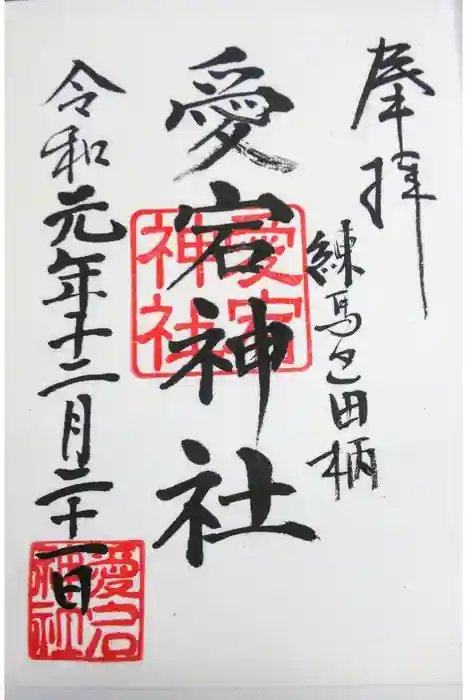 奉拝
練馬区田柄
愛宕神社
愛宕神社
令和元年十二月二十一日
愛宕神社